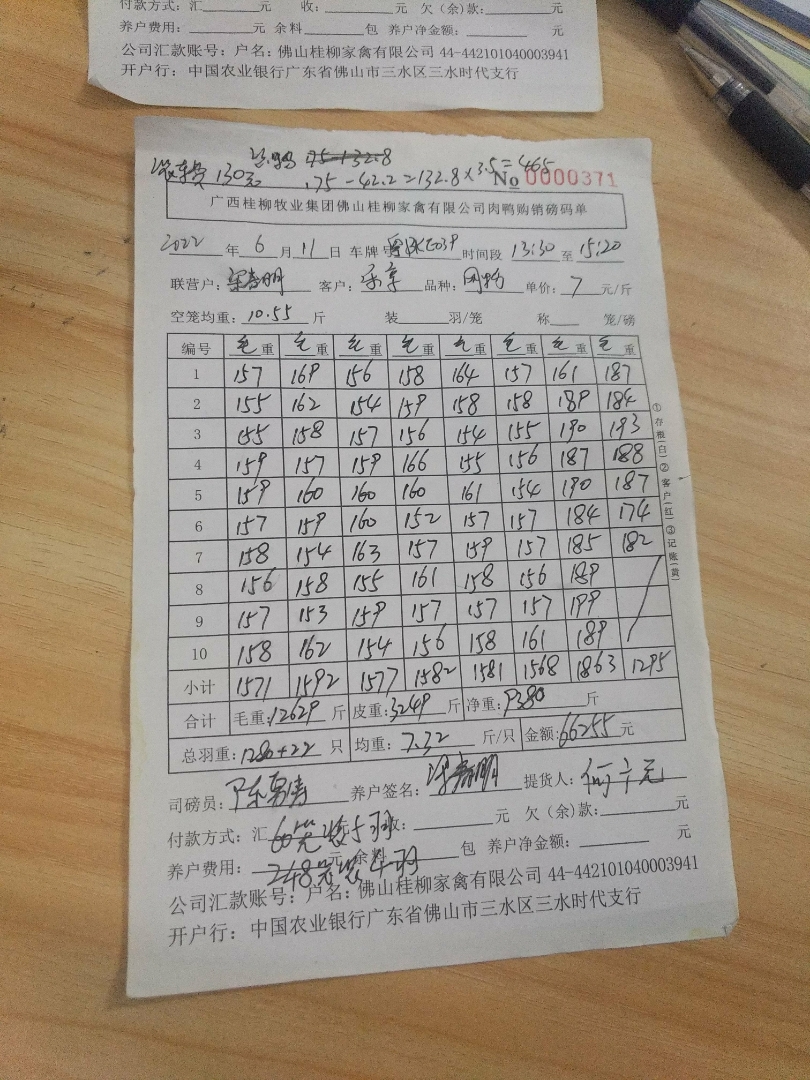 付款方式：汇______元 收：______元 欠（余）款：______元
养户费用：______元 余料______包 养户净金额：______元
公司汇款账号：户名：佛山桂柳家禽有限公司 44-442101040003941
开户行：中国农业银行广东省佛山市三水区三水时代支行
75-132.8
装车费 130元 175-42.2=132.8×3.5=465
No 0000371
广西桂柳牧业集团佛山桂柳家禽有限公司肉鸭购销磅码单
2022年6月11日 车牌号 时间段 13:30至15:20
联营户： 客户： 品种： 单价：7元/斤
空笼均重：10.55斤 装____羽/笼 称____笼/磅
编号 毛重 毛重 毛重 毛重 毛重 毛重 毛重 毛重
1 157 169 156 158 164 157 161 187
2 155 162 154 159 158 158 189 184
3 155 158 157 156 154 155 190 193
4 159 157 159 166 155 156 187 188
5 159 160 160 160 161 154 190 187
6 157 159 160 152 157 157 184 174
7 158 154 163 157 159 157 185 182
8 156 158 155 161 158 156 189
9 157 153 159 157 157 157 199
10 158 162 154 156 158 161 189
小计 1571 1592 1577 1582 1581 1568 1863 1295
合计 毛重：12629斤 皮重：3249斤 净重：9380斤
总羽重：1280+22只 均重：7.32斤/只 金额：66255元
司磅员： 养户签名： 提货人：
付款方式：汇 60笼装5羽 收：______元 欠（余）款：______元
养户费用：248笼装4羽 元 余料 包 养户净金额：______元
公司汇款账号：户名：佛山桂柳家禽有限公司 44-442101040003941
开户行：中国农业银行广东省佛山市三水区三水时代支行
①存根（白）②客户（红）③记账（黄）